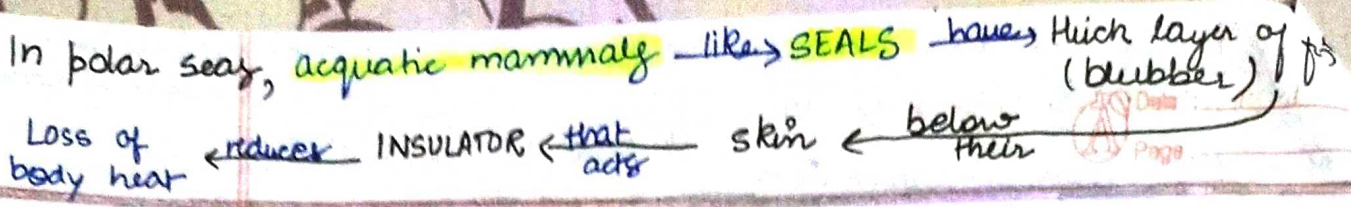 In polar seas, acquatic mammals like SEALS have thick layer of
(blubber)
below
their
Loss of body heat reduces INSULATOR that acts skin
Date
Page